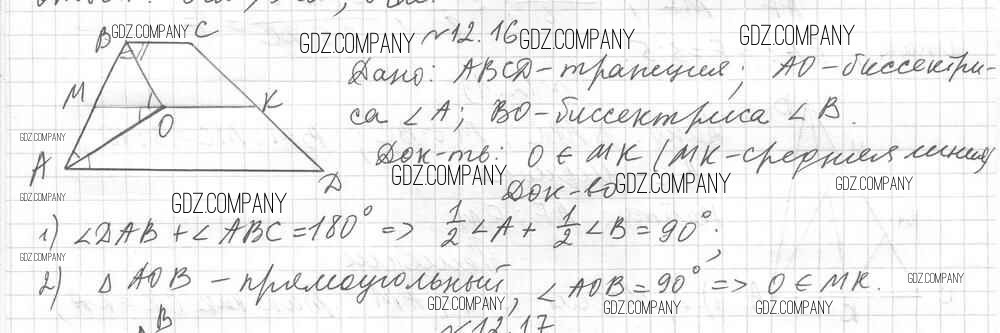 GDZ.COMPANY
B C GDZ.COMPANY №12.16 GDZ.COMPANY GDZ.COMPANY
Дано: ABCD - трапеция; AO - биссектри-
M K са ∠A; BO - биссектриса ∠B.
O
GDZ.COMPANY
Док-ть: O ∈ MK (MK - средняя линия)
A D GDZ.COMPANY GDZ.COMPANY
GDZ.COMPANY GDZ.COMPANY Док-во GDZ.COMPANY
1) ∠DAB + ∠ABC = 180° => 1/2 ∠A + 1/2 ∠B = 90°;
GDZ.COMPANY
2) △ AOB - прямоугольный, ∠AOB = 90° => O ∈ MK.
GDZ.COMPANY GDZ.COMPANY GDZ.COMPANY GDZ.COMPANY GDZ.COMPANY
B №12.17